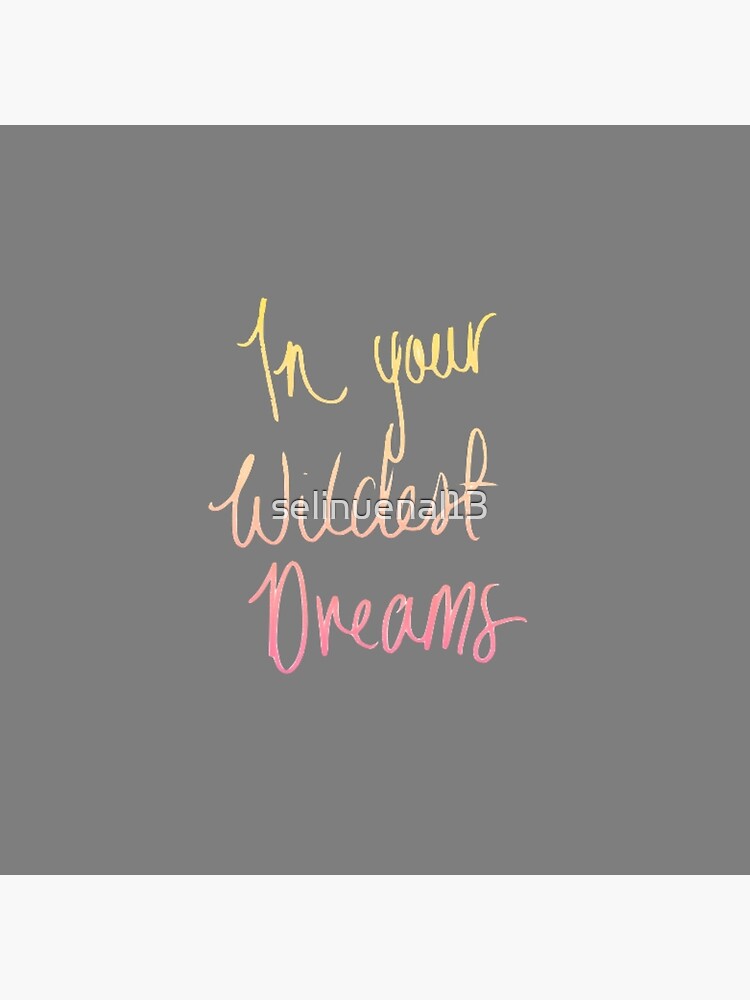 In your
Wildest
selinuenal13
Dreams